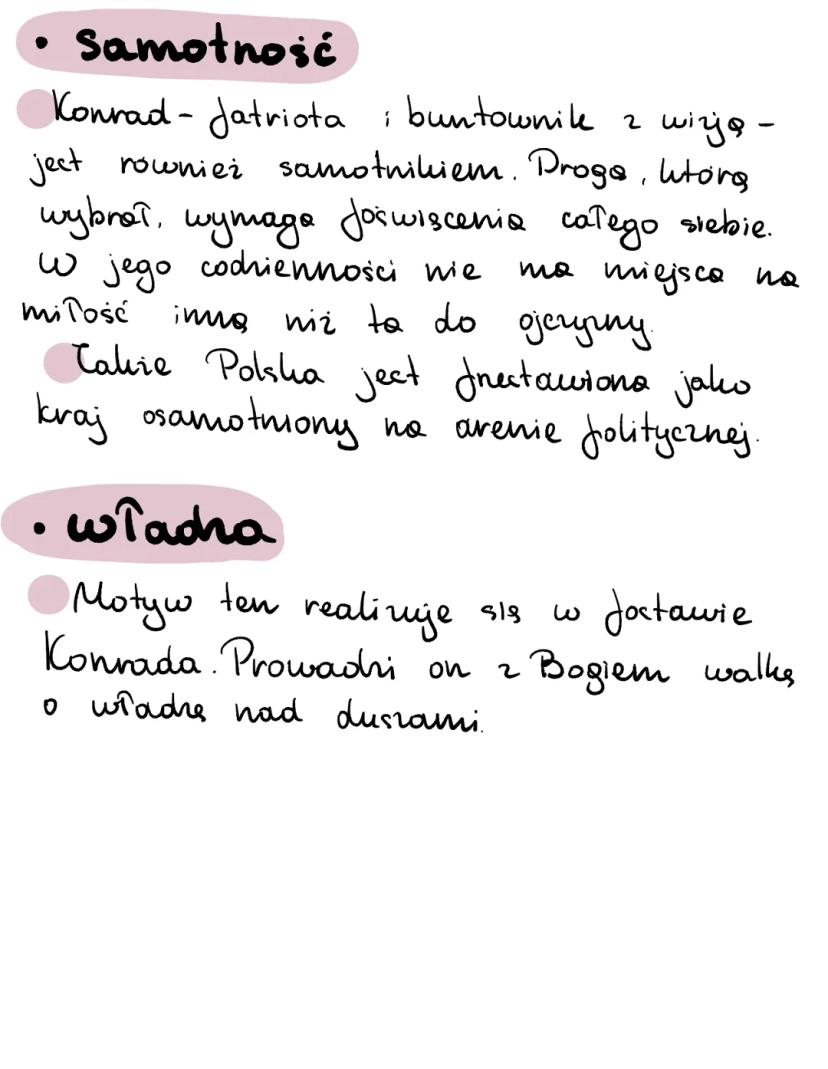 • samotność
Konrad - patriota i buntownik z wizją -
jest rownież samotnikiem. Droga, którą
wybrał, wymaga poświęcenia całego siebie.
W jego codzienności nie ma miejsca na
miłość inną niż ta do ojczyzny.
Także Polska jest przestawiona jako
kraj osamotniony na arenie politycznej.
• władza
Motyw ten realizuje się w postawie
Konrada. Prowadzi on z Bogiem walkę
o władzę nad duszami.